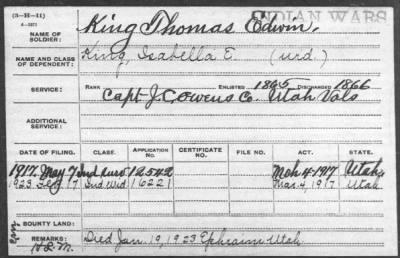 (3-H-11)
INDIAN WARS
NAME OF SOLDIER: King Thomas Edwin,
NAME AND CLASS OF DEPENDENT: King, Isabella E. (wid.)
SERVICE: RANK ENLISTED 1865 DISCHARGED 1866
Capt J.C. Owens Co. Utah Vols
ADDITIONAL SERVICE:
DATE OF FILING. CLASS. APPLICATION No. CERTIFICATE NO. FILE NO. ACT. STATE.
1917 May 7 Ind Surv 12542 Mch 4 1917 Utah
1923 17 Ind Wid 16221 Mar. 4, 1917 Utah
BOUNTY LAND:
REMARKS: Died Jan. 19, 1923 Ephraim Utah